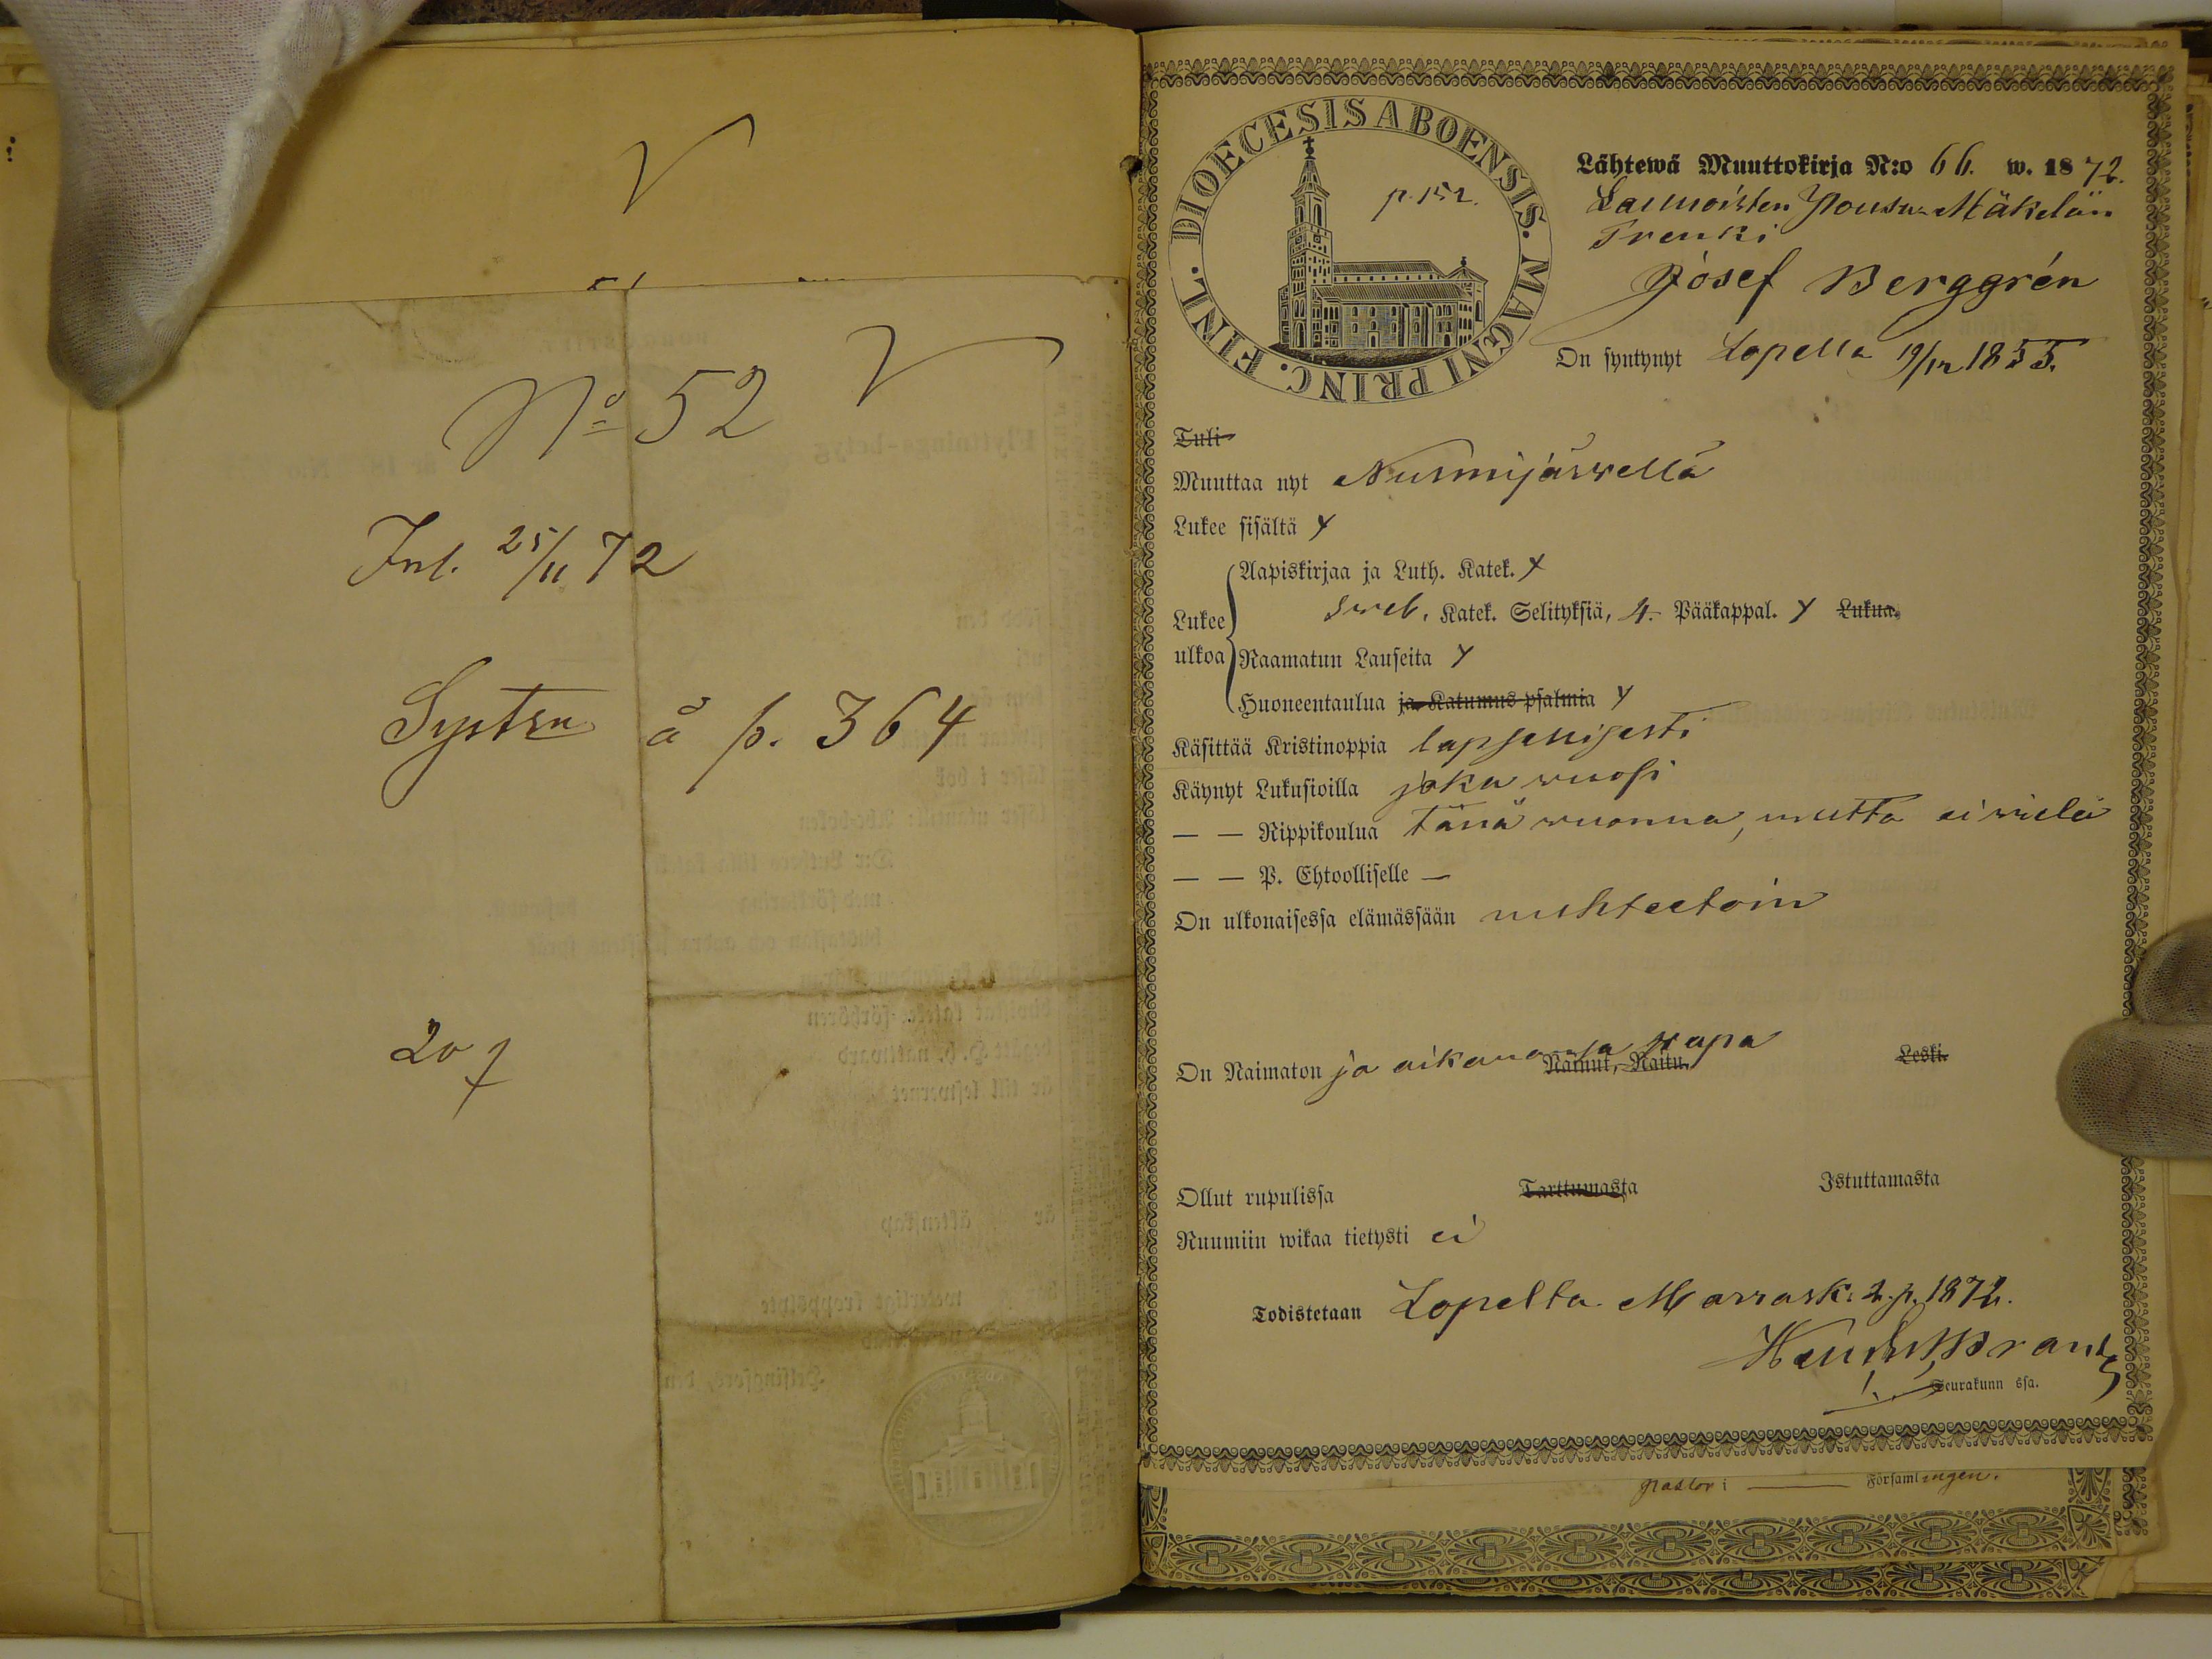 No 52
Inl. 25/11 72
å p. 364
20
DIOECESIS ABOENSIS. MAGNI PRINC. FINL.
p. 152.
Lähtewä Muuttokirja N:o 66. w. 1872.
Mäkelän
Trenki
Josef Berggrén
On syntynyt Lopella 19/12 1855.
Tuli
Muuttaa nyt Nurmijärwellä
Lukee sisältä
Lukee ulkoa
Aapiskirjaa ja Luth. Katek.
Sweb. Katek. Selityksiä, 4. Pääkappal. Lukua.
Raamatun Lauseita
Huoneentaulua ja Katumus psalmia
Käsittää Kristinoppia lapsellisesti
Käynyt Lukusioilla joka wuosi
— — Rippikoulua tänä wuonna, mutta ei wielä
— — P. Ehtoolliselle —
On ulkonaisessa elämässään nuhteetoin
On Naimaton ja aikanansa wapa Nainut, Naitu. Leski.
Ollut rupulissa Tarttumasta Istuttamasta
Ruumiin wikaa tietysti ei
Todistetaan Lopelta Marrask. 2. p. 1872.
Seurakunn ssa.
Pastor i —— Församlingen.